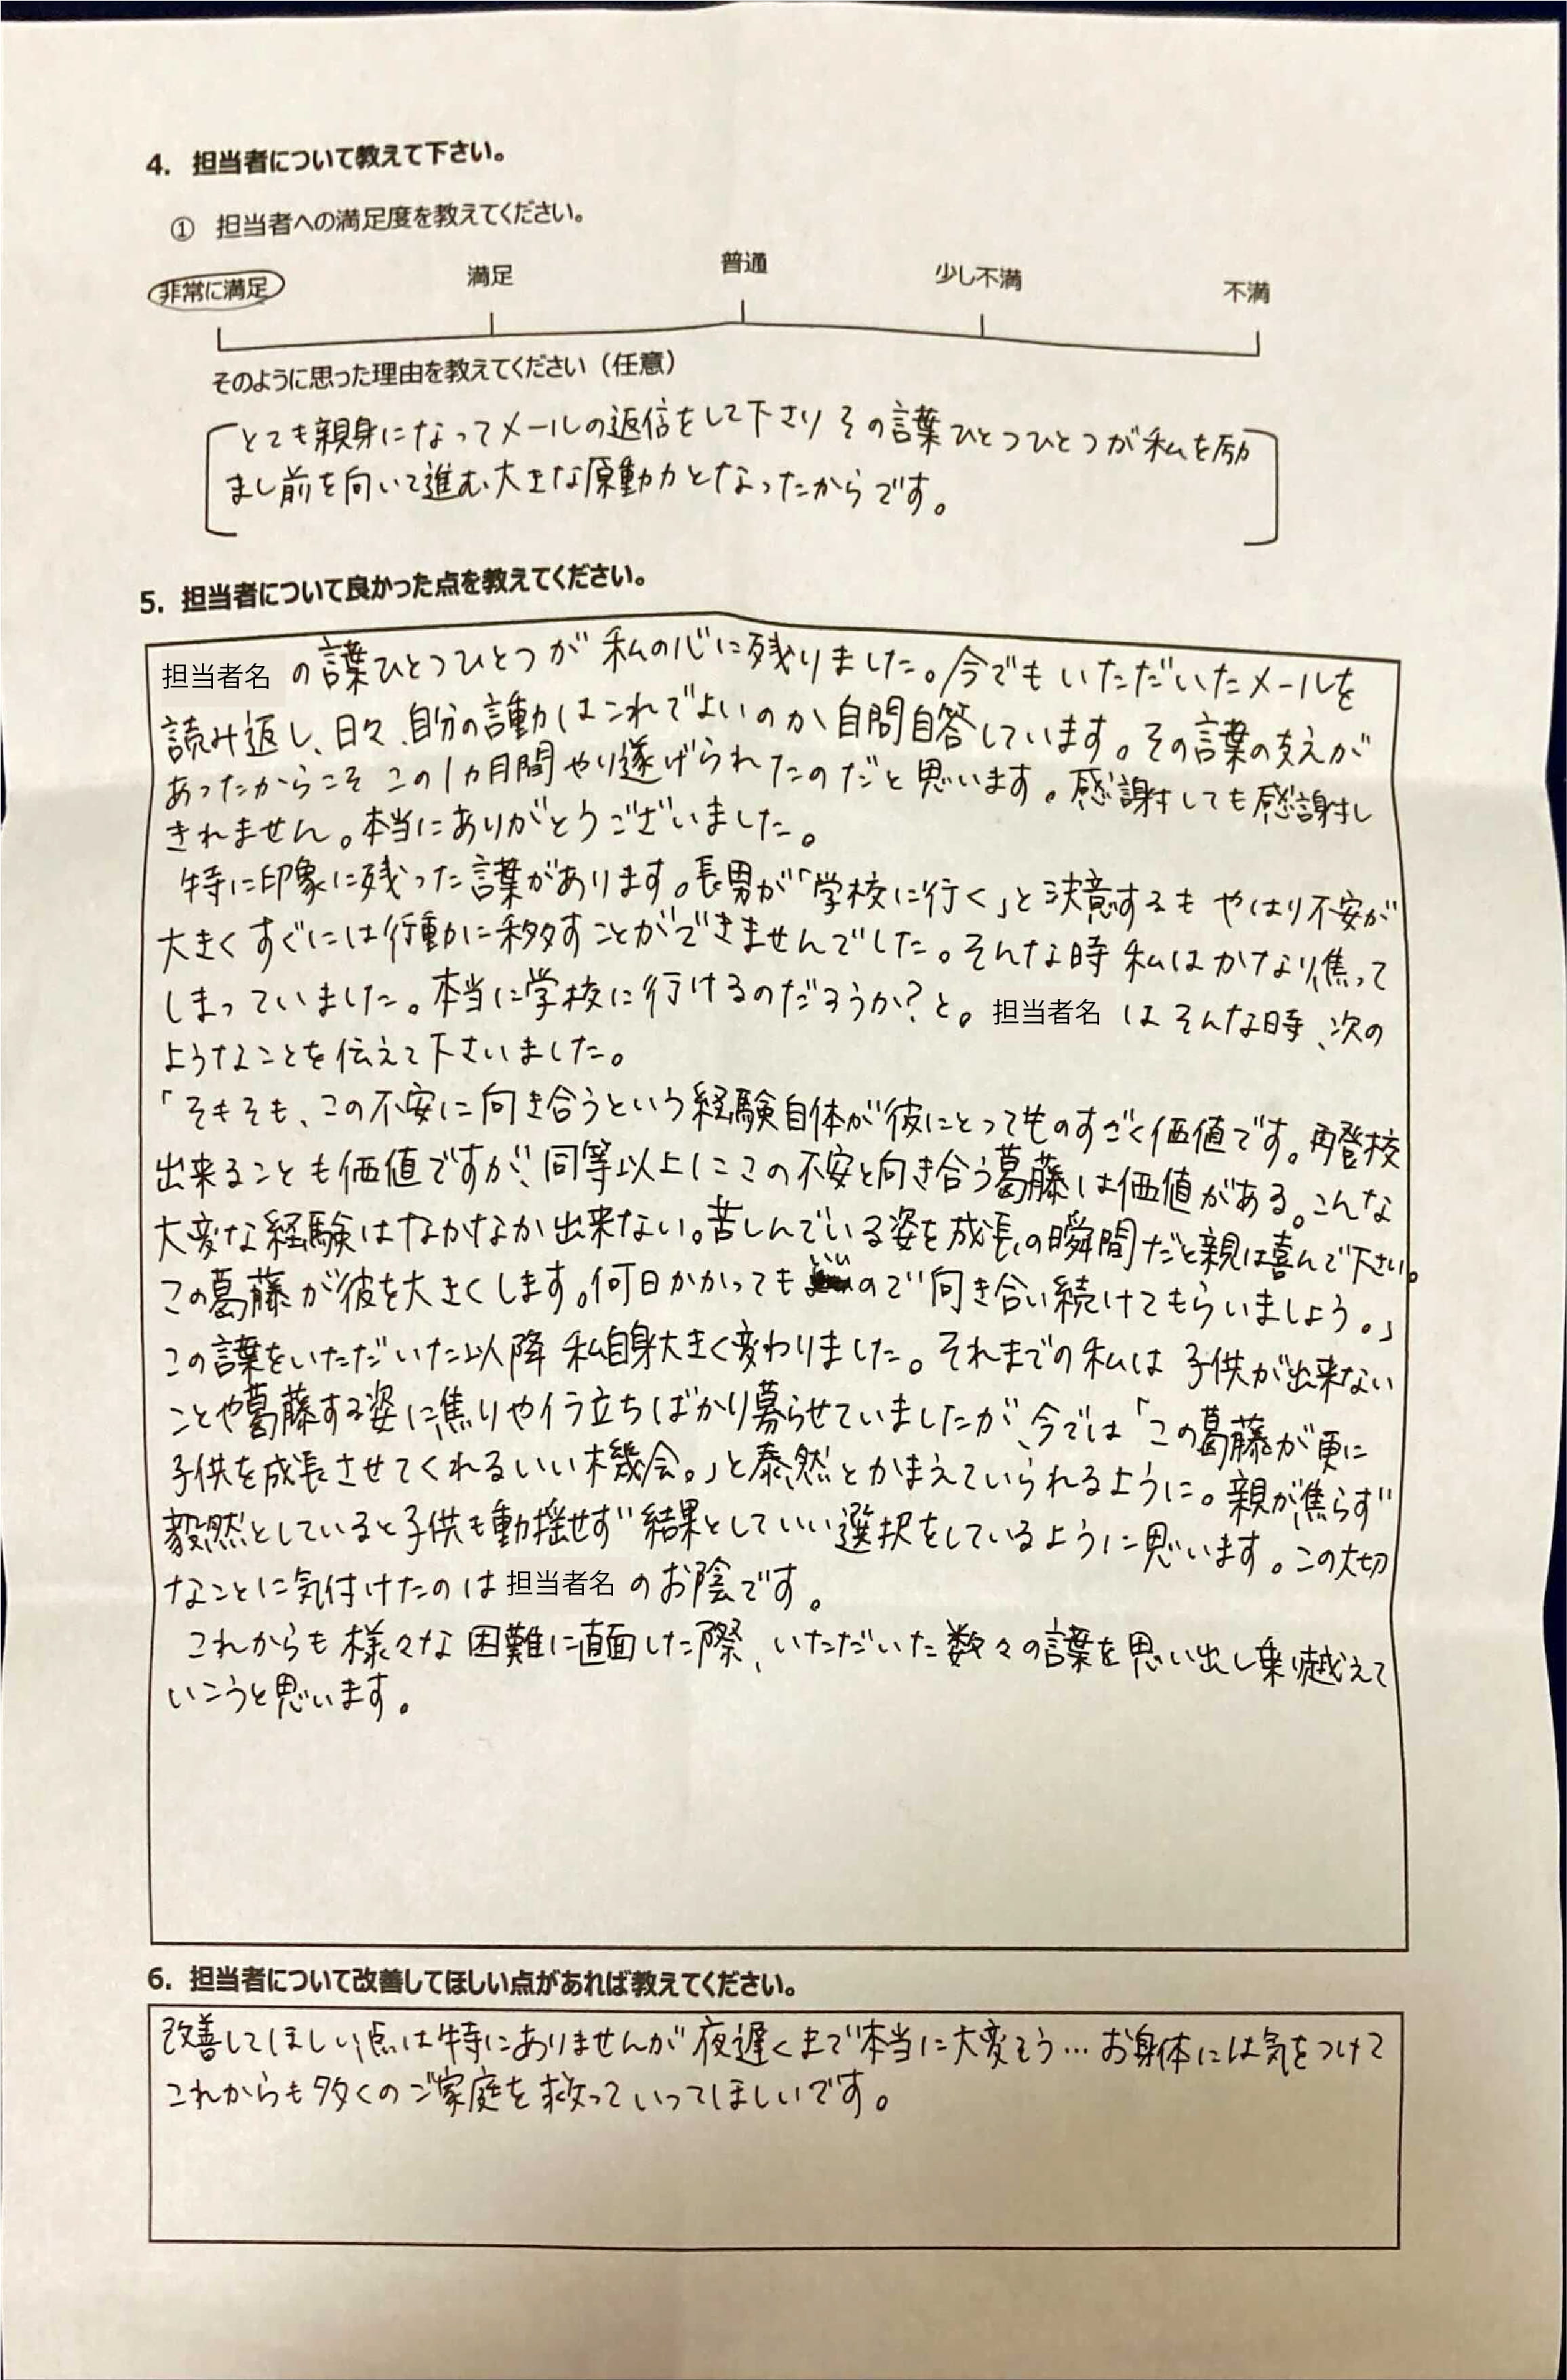 4. 担当者について教えて下さい。
① 担当者への満足度を教えてください。
非常に満足 満足 普通 少し不満 不満
そのように思った理由を教えてください（任意）
とても親身になってメールの返信をして下さり その言葉ひとつひとつが私を励
まし前を向いて進む大きな原動力となったからです。
5. 担当者について良かった点を教えてください。
担当者名 の言葉ひとつひとつが 私の心に残りました。今でもいただいたメールを
読み返し、日々、自分の言動はこれでよいのか自問自答しています。その言葉の支えが
あったからこそ この1ヵ月間やり遂げられたのだと思います。感謝しても感謝し
きれません。本当にありがとうございました。
特に印象に残った言葉があります。長男が「学校に行く」と決意するも やはり不安が
大きく すぐには行動に移すことができませんでした。そんな時 私はかなり焦って
しまっていました。本当に学校に行けるのだろうか？と。 担当者名 はそんな時、次の
ようなことを伝えて下さいました。
「そもそも、この不安に向き合うという経験自体が彼にとってものすごく価値です。再登校
出来ることも価値ですが、同等以上にこの不安と向き合う葛藤は価値がある。こんな
大変な経験はなかなか出来ない。苦しんでいる姿を成長の瞬間だと親は喜んで下さい。
この葛藤が彼を大きくします。何日かかってもいいので向き合い続けてもらいましょう。」
この言葉をいただいた以降 私自身大きく変わりました。それまでの私は 子供が出来ない
ことや葛藤する姿に焦りやイラ立ちばかり募らせていましたが、今では「この葛藤が更に
子供を成長させてくれるいい機会。」と泰然とかまえていられるように。親が焦らず
毅然としていると子供も動揺せず 結果としていい選択をしているように思います。この大切
なことに気付けたのは 担当者名 のお陰です。
これからも様々な困難に直面した際、いただいた数々の言葉を思い出し乗り越えて
いこうと思います。
6. 担当者について改善してほしい点があれば教えてください。
改善してほしい点は特にありませんが 夜遅くまで本当に大変そう…お身体には気をつけて
これからも多くのご家庭を救っていってほしいです。